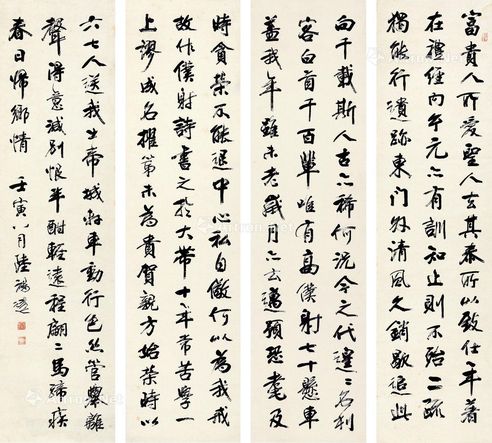 富貴人所愛聖人去其泰所以致仕年著
在禮經内元元亦有訓知止則不殆二疏
獨能行遺跡東門外清風久銷歇迨此
向千載斯人古亦稀何況今之代遑〻名利
客白首千百輩唯有高僕射七十懸車
蓋我年雖未老歲月亦云邁預恐耄及
時貪榮不能退中心私自儆何以為我戒
故作僕射詩書之於大帶十年常苦學一
上謬成名擢第未為貴賀親方始榮時
六七人送我出帝城軒車動行色絲管舉離
聲得意減別恨半酣輕遠程翩〻馬蹄疾
春日歸鄉情 壬寅八月陸